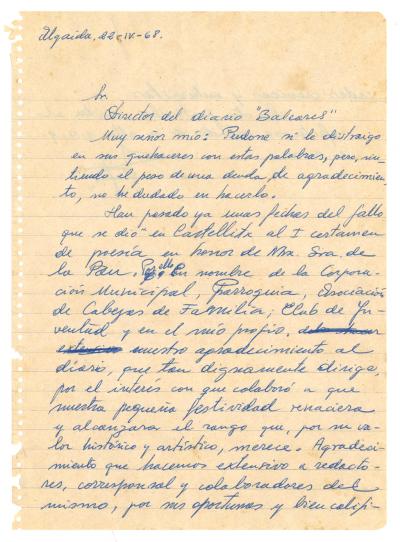 Algaida, 22-IV-68.
Sr.
Director del diario "Baleares"
Muy señor mío: Perdone si le distraigo
en sus quehaceres con estas palabras, pero, sin-
tiendo el peso de una deuda de agradecimien-
to, no he dudado en hacerlo.
Han pasado ya unas fechas del fallo
que se dió en Castellitx al I certamen
de poesía en honor de Ntra. Sra. de
la Pau. Por ello en nombre de la Corpora-
ción Municipal, Parroquia, Asociación
de Cabezas de Familia, Club de Ju-
ventud y en el mío propio,
extensivo nuestro agradecimiento al
diario, que tan dignamente dirige,
por el interés con que colaboró a que
nuestra pequeña festividad renaciera
y alcanzara el rango que, por su va-
lor histórico y artístico, merece. Agradeci-
miento que hacemos extensivo a redacto-
res, corresponsal y colaboradores del
mismo, por sus oportunas y bien califi-